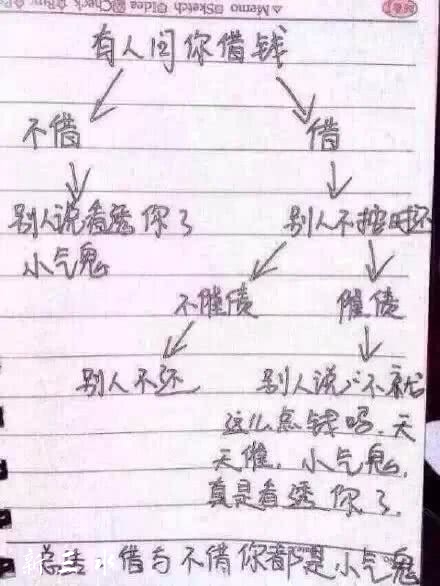 △Memo □Sketch □Idea □Check □Buy
有人问你借钱
不借
借
别人说看透你了
小气鬼
别人不按时还
不催债
催债
别人不还
别人说:不就
这么点钱吗,天
天催,小气鬼,
真是看透你了.
总结 借与不借你都是小气鬼